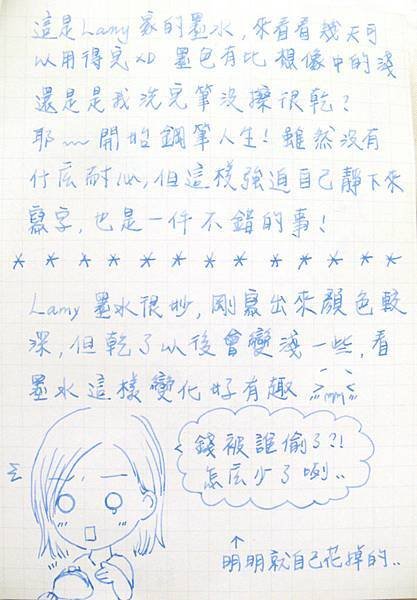 這是Lamy家的墨水,來看看幾天可
以用得完xD 墨色有比想像中的淺
還是是我洗完筆沒擦很乾?
耶~~開始鋼筆人生!雖然沒有
什庅耐心,但這樣強迫自己靜下來
寫字,也是一件不錯的事!
* * * * * * * * * * * * *
Lamy墨水很妙,剛寫出來顏色較
深,但乾了以後會變淺一些,看
墨水這樣變化好有趣
錢被誰偷了?!
怎庅少了咧..
↑
明明就自己花掉的..